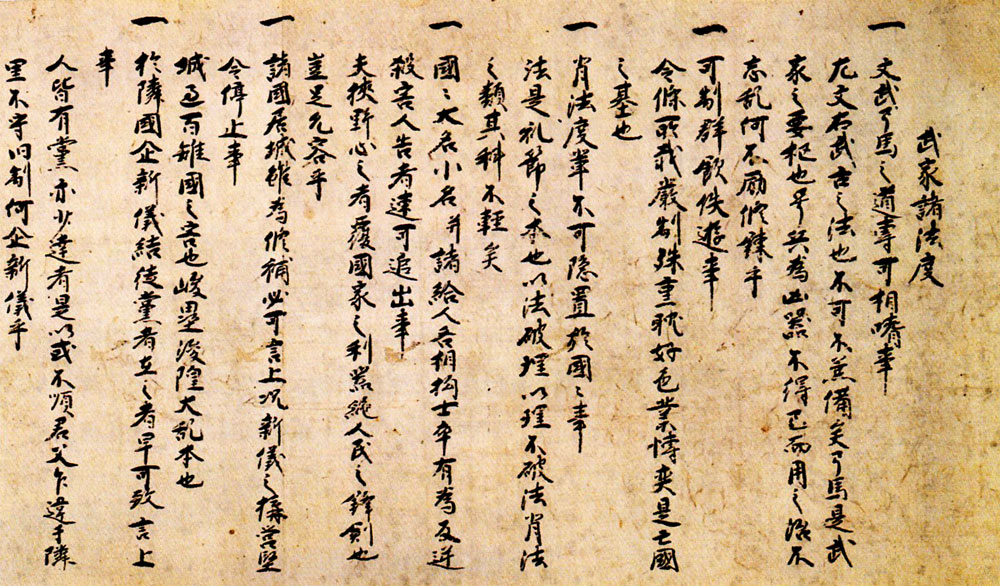 武家諸法度
一 文武弓馬之道専可相嗜事
左文右武古之法也不可不兼備矣弓馬是武
家之要枢也号兵為凶器不得已而用之治不
忘乱何不励修錬乎
一 可制群飲佚遊事
令條所載厳制殊重耽好色業博奕是亡国
之基也
一 背法度輩不可隠置於國々事
法是礼節之本也以法破理以理不破法背法
之類其科不軽矣
一 國々大名小名并諸給人各相拘士卒有為反逆
殺害人告者速可追出事
夫挟野心之者覆國家之利器絶人民之鋒剣也
豈足允容乎
一 諸國居城雖為修補必可言上况新儀之搆営堅
令停止事
城過百雉國之害也峻塁浚隍大乱本也
一 於隣國企新儀結徒黨者在之者早可致言上
事
人皆有黨亦少達者是以或不順君父乍違于隣
里不守旧制何企新儀乎